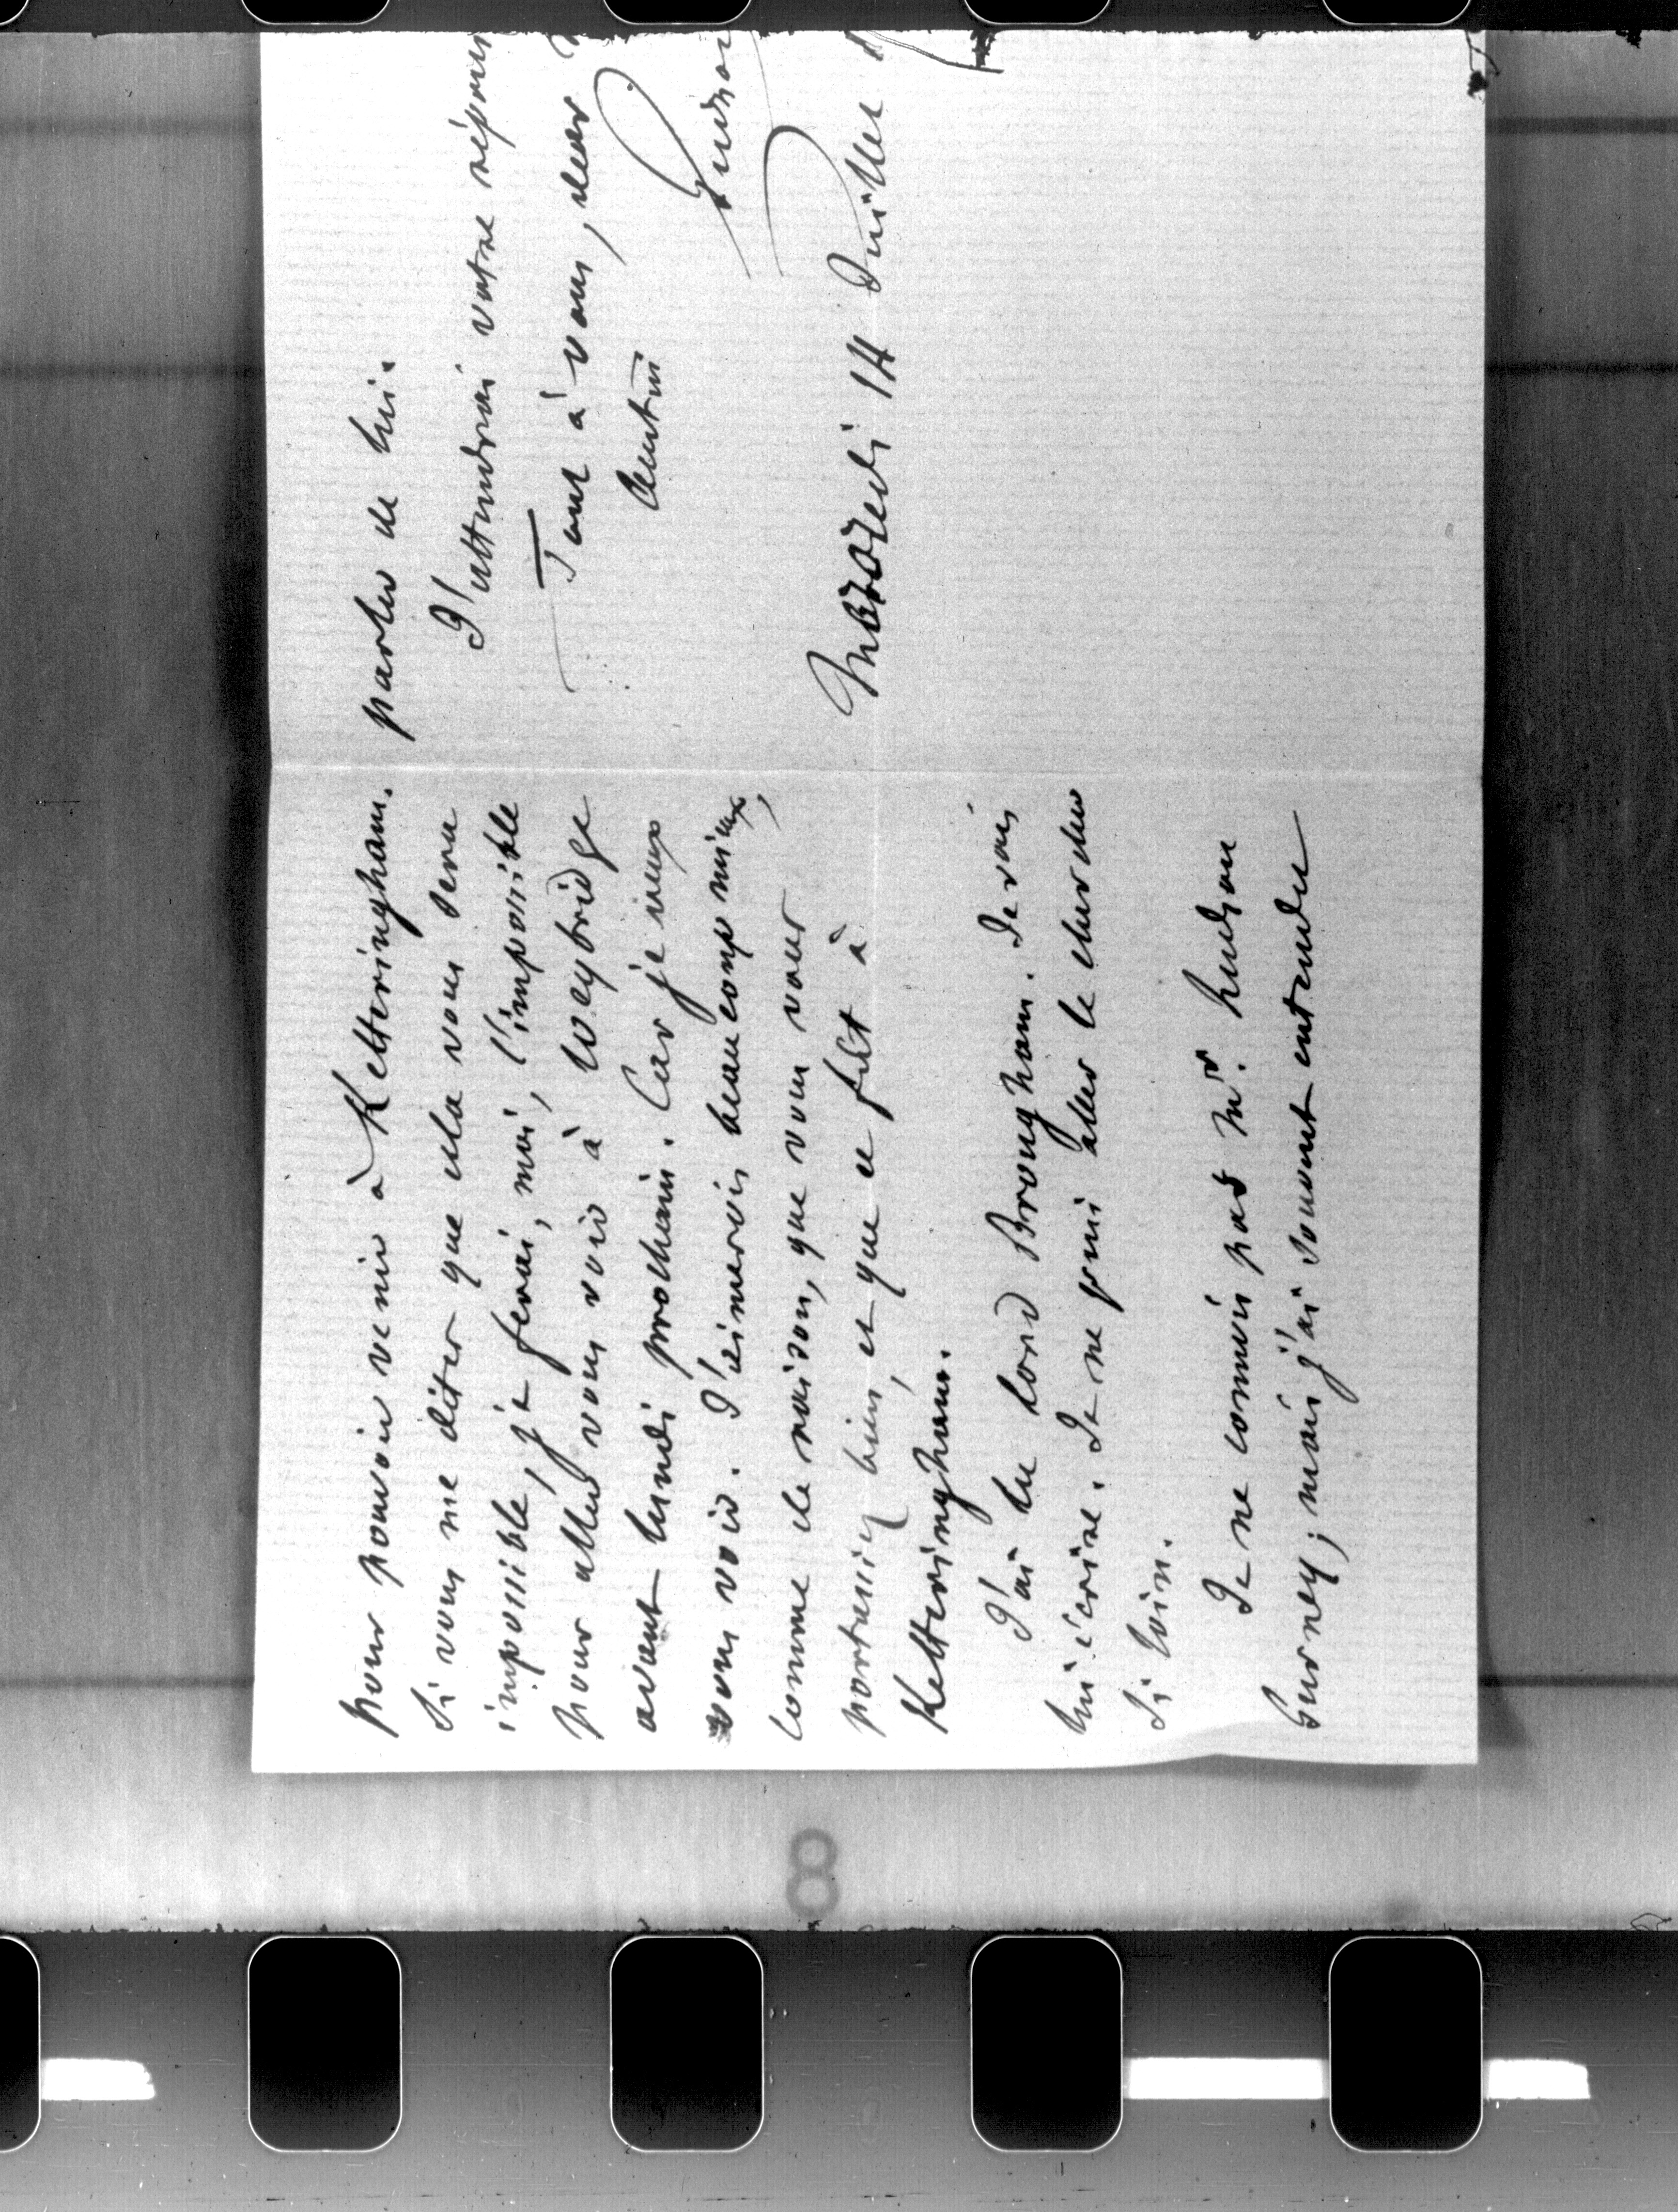 pour pouvoir venir à Ketteringham.
Si vous me dites que cela vous sera
impossible, je ferai, moi, l'impossible
pour aller vous voir à Weybridge
avant lundi prochain. Car je veux
vous voir. J'aimerois beaucoup mieux,
comme de raison, que vous vous
portassiez bien, et que ce fût à
Ketteringham.
J'ai lu Lord Brougham. Je vais
lui écrire. Je ne puis aller le chercher
si loin.
Je ne connois pas Mr. Hudson
Gurney; mais j'ai souvent entendu
parler de lui.
J'attendrai votre
Tout à vous, dear
Austin
Guizot
Mercredi 14 Juillet
8